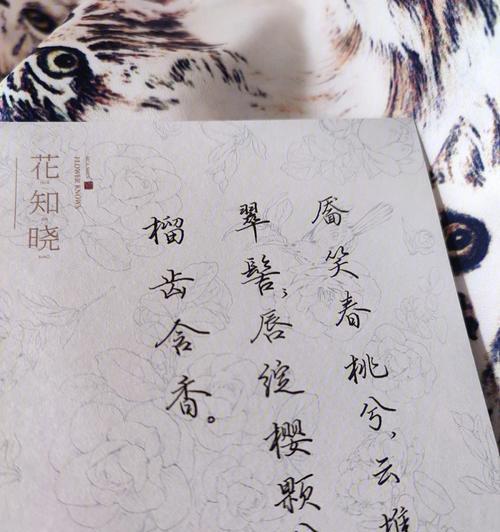 花知晓
FLOWER KNOWS
靥笑春桃兮，云堆
翠髻；唇绽樱颗
榴齿含香。